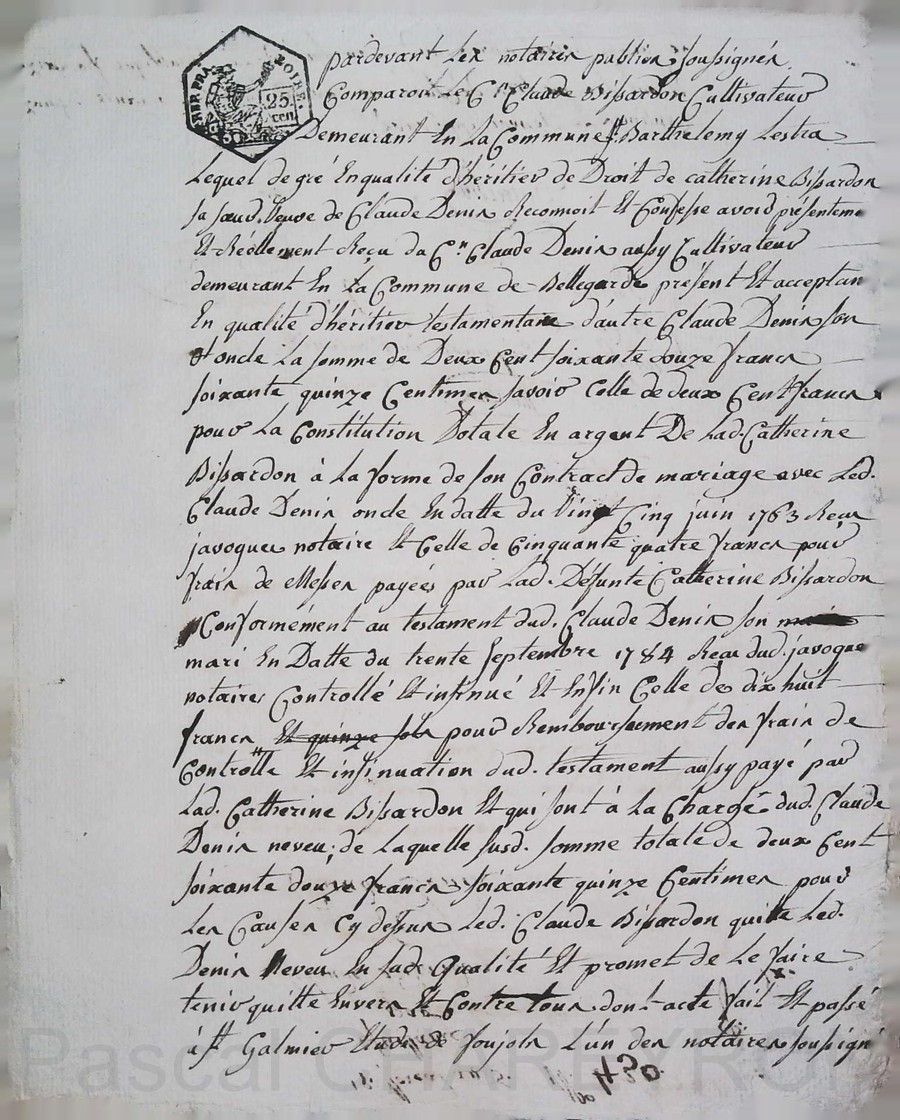 pardevant Les notaires publics soussignés
Comparoit Le Cn Claude Bissardon Cultivateur
Demeurant En La Commune St Barthelemy Lestra
Lequel de gré En qualité d'héritier de Droit de catherine Bissardon
sa sœur, Veuve de Claude Denis Reconnoit Et Confesse avoir présenteme
Et Réellement Reçu du Cn Claude Denis aussy Cultivateur
demeurant En La Commune de Bellegarde présent Et acceptan
En qualité d'héritier testamentaire d'autre Claude Denis son
oncle La somme de Deux Cent soixante douze francs
soixante quinze Centimes savoir Celle de deux Cent francs
pour La Constitution Dotale En argent De Lad. Catherine
Bissardon à La forme de son Contract de mariage avec Led.
Claude Denis oncle En datte du Vingt Cinq juin 1763 Reçu
javogues notaire Et Celle de Cinquante quatre francs pour
frais de Messes payées par Lad. Défunte Catherine Bissardon
Conformément au testament dud. Claude Denis son
mari En Datte du trente Septembre 1784 Reçu dud. javogue
notaire Controllé Et insinué Et Enfin Celle de dix huit
francs Et quinze sols pour Remboursement des frais de
Controlle Et insinuation dud. testament aussy payé par
Lad. Catherine Bissardon Et qui sont à La Charge dud. Claude
Denis neveu; de Laquelle susd. somme totale de deux Cent
soixante douze francs soixante quinze Centimes pour
Les Causes Cy dessus Led. Claude Bissardon quitte Led.
Denis Neveu En sad. Qualité Et promet de Le faire
tenir quitte Envers Et Contre tous dont acte fait Et passé
à St Galmier Etude de Soujols L'un des notaires soussigné
25
450
Pascal